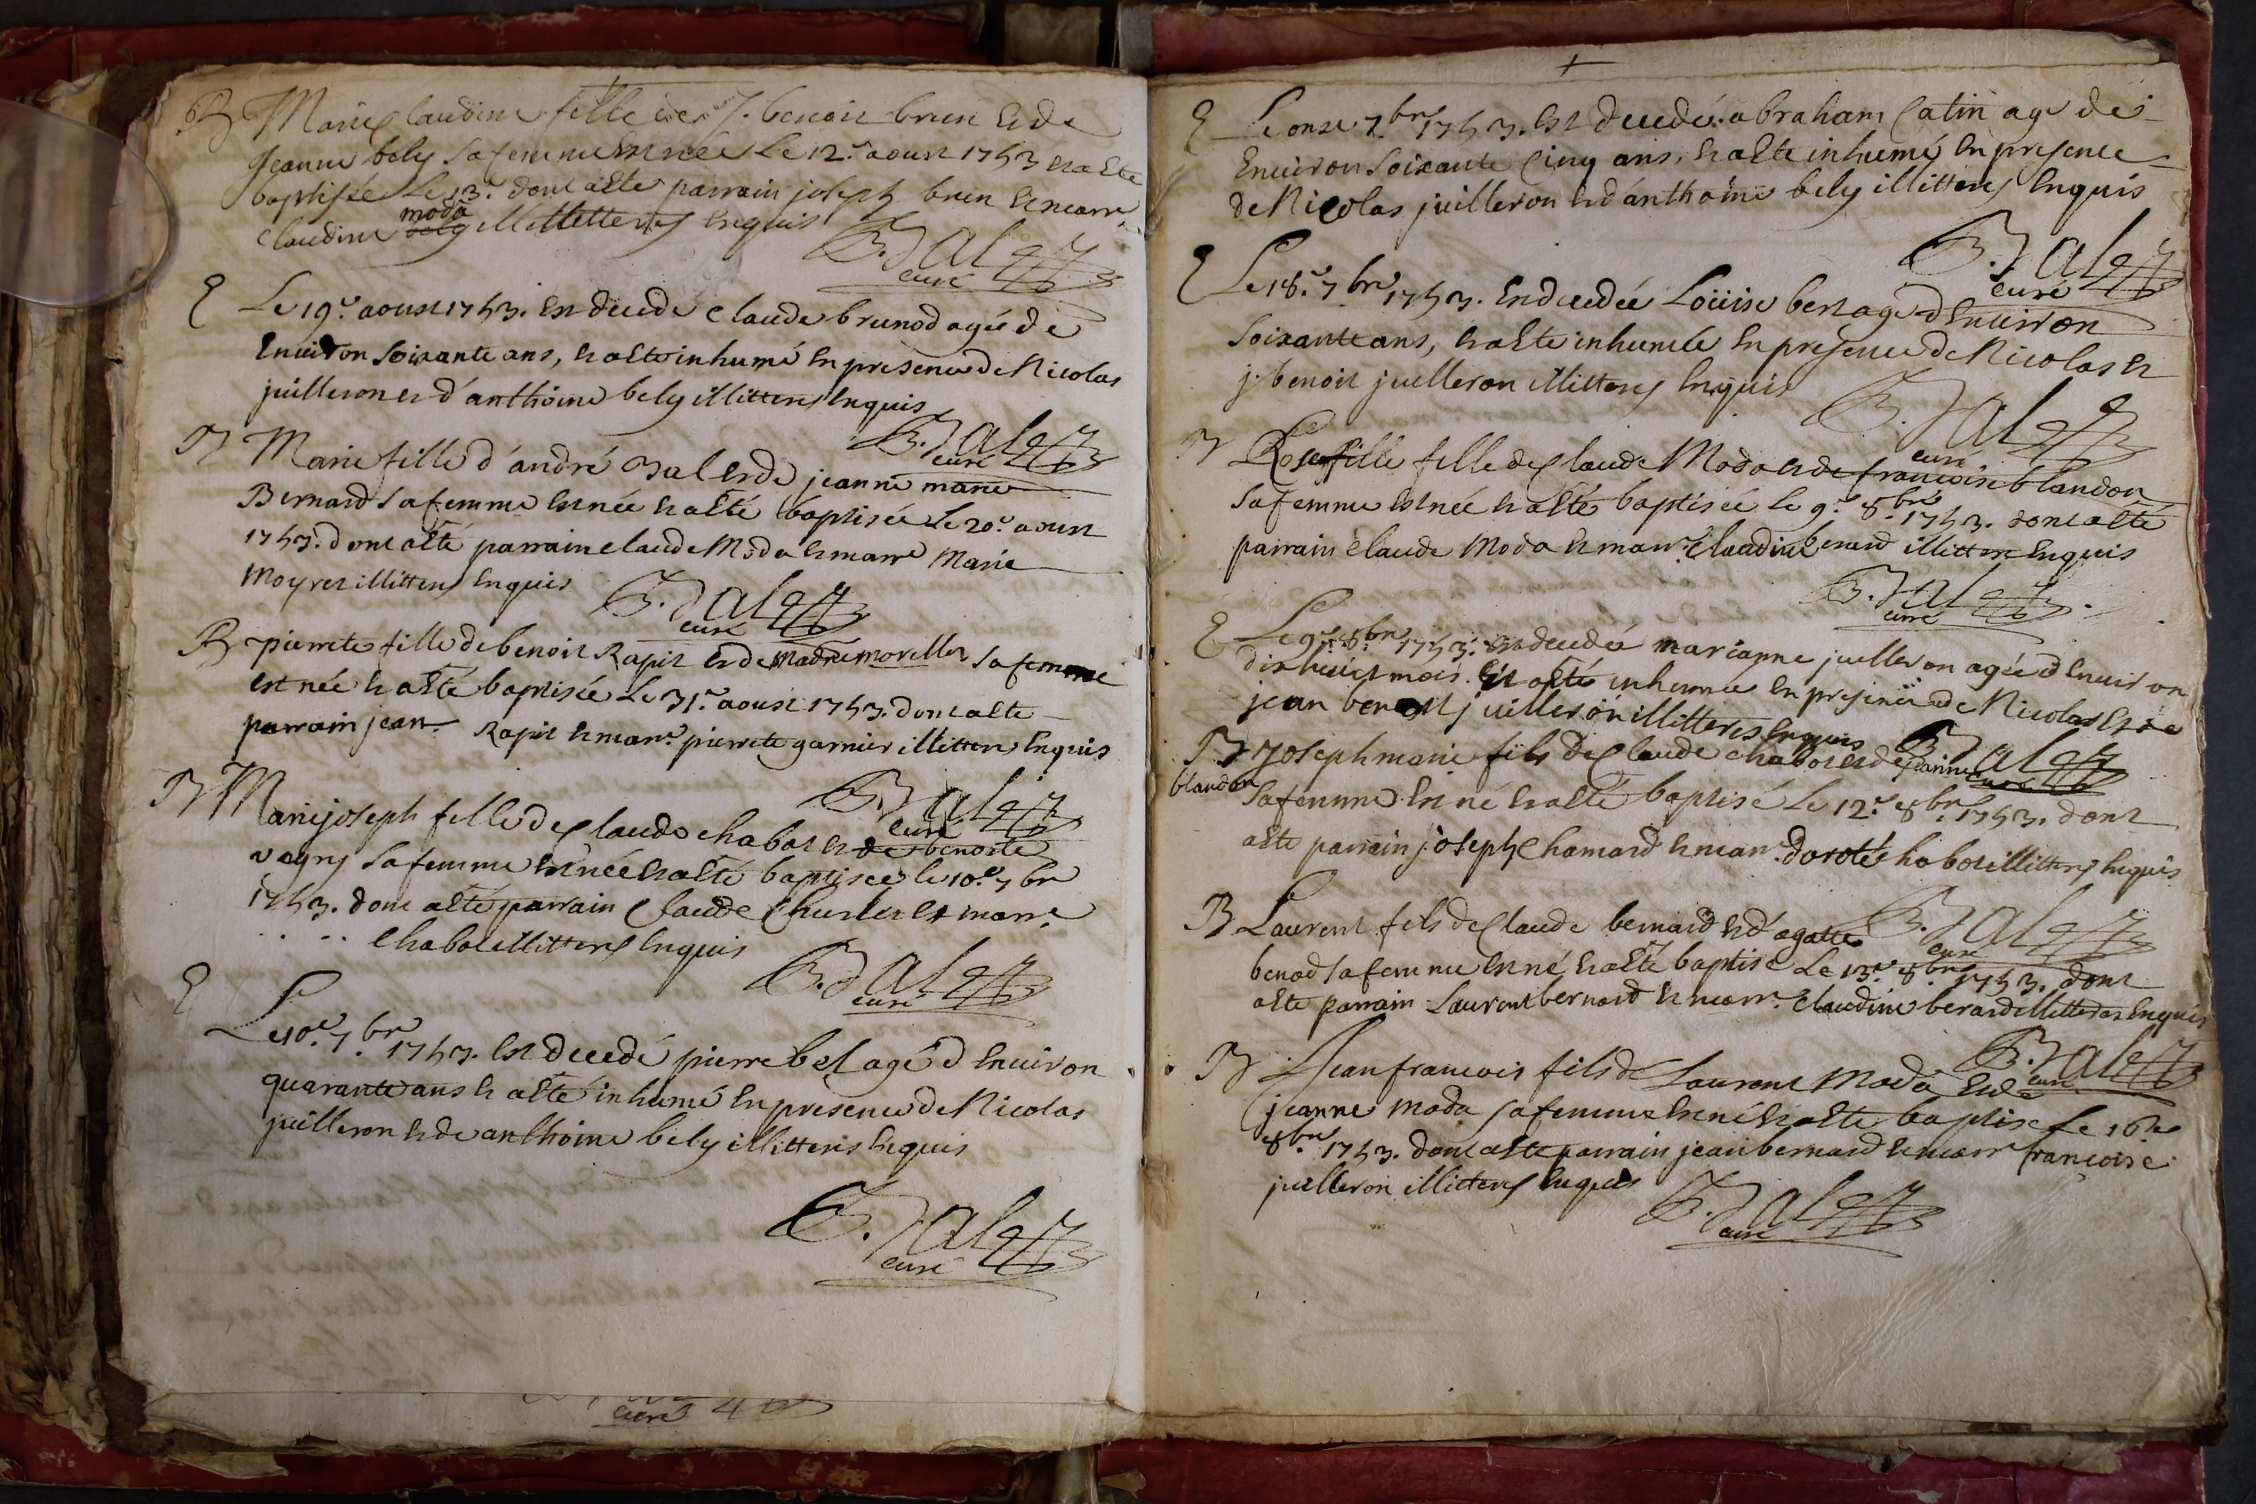 B Marie Claudine fille de J. benoit brun et de
Jeanne bely sa femme est née le 12.e aoust 1753 et a este
baptisée le 13.e dont a este parrain joseph brun et marr.e
moda
Claudine bely illitteres enquis
B. Jalez
curé
E Le 19.e aoust 1753. est decedé claude brunod agé de
environ soixante ans, et a este inhumé en presence de Nicolas
juilleron et d'anthoine bely illitteres enquis
B. Jalez
curé
B Marie fille d'andré Jal et de jeanne marie
Bernard sa femme est née et a esté baptisée le 20.e aoust
1753. dont a esté parrain claude Moda et marr.e Marie
Moyret illitteres enquis
B. Jalez
curé
B pierrete fille de benoit Rapit et de morellet sa femme
est née et a esté baptisée le 31.e aoust 1753. dont a este
parrain jean Rapit et marr.e pierrete garnier illitteres enquis
B. Jalez
curé
B Marie joseph fille de Claude chabot et de benoite
sa femme est née et a esté baptisée le 10.e 7.bre
1753. dont a esté parrain Claude et marr.e
. . . . chabot illitteres enquis
B. Jalez
curé
E Le 10.e 7.bre 1753. est decedé pierre bel agé d'environ
quarante ans et a esté inhumé en presence de Nicolas
juilleron et de anthoine bely illitteris enquis
B. Jalez
curé
curé
E Le onze 7.bre 1753. est decedé abraham Catin agé de
environ soixante cinq ans, et a este inhumé en presence
de Nicolas juilleron et d'anthoine bely illitteres enquis
B. Jalez
curé
E Le 18.e 7.bre 1753. est decedée Loüise bert agé d'environ
soixante ans, et a este inhumée en presence de Nicolas et
j. benoit juilleron illitteres enquis
B. Jalez
curé
B Rose fille fille de Claude Moda et de francoise blandon
sa femme est née et a esté baptisée le 9.e 8.bre 1753. dont a esté
parrain Claude Moda et marr.e Claudine berard illittere enquis
B. Jalez
curé
E Le 9.e 8.bre 1753. est decedée marianne juilleron agée d'environ
dix huict mois. Et a esté inhumée en presence de Nicolas et de
jean benoit juilleron illitteres enquis
B. Jalez
curé
B Joseph marie fils de Claude chabot et de jeanne
blandon
sa femme est né et a esté baptisé le 12.e 8.bre 1753. dont
a este parrain joseph Chamard et marr.e doroté chabot illitteres enquis
B. Jalez
curé
B Laurent fils de Claude bernard et d'agatte
benod sa femme est né, et a esté baptisé le 13.e 8.bre 1753. dont
a este parrain Laurent bernard et marr.e Claudine berard illitteres enquis
B. Jalez
curé
B Jean francois fils de Laurent Moda et de
jeanne moda sa femme est né et a este baptisé le 16.e
8.bre 1753. dont a este parrain jean bernard et marr.e francoise
juilleron illitteres enquis
B. Jalez
curé